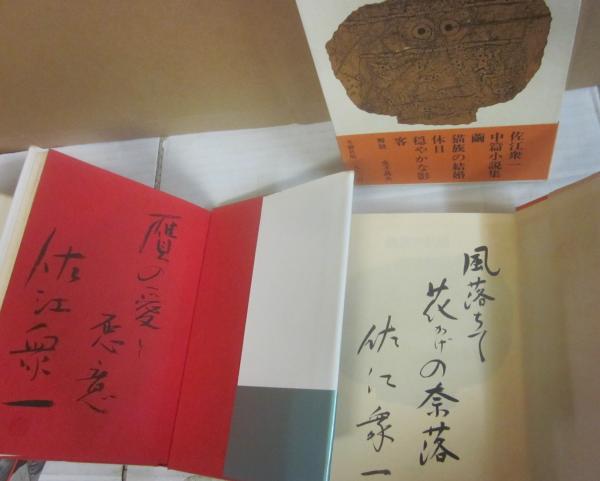 佐江衆一
中篇小説集
繭
猫族の結婚
休日
穏やかな影
客
贋の愛と
悪意
佐江衆一
風落ちて
花かげの奈落
佐江衆一